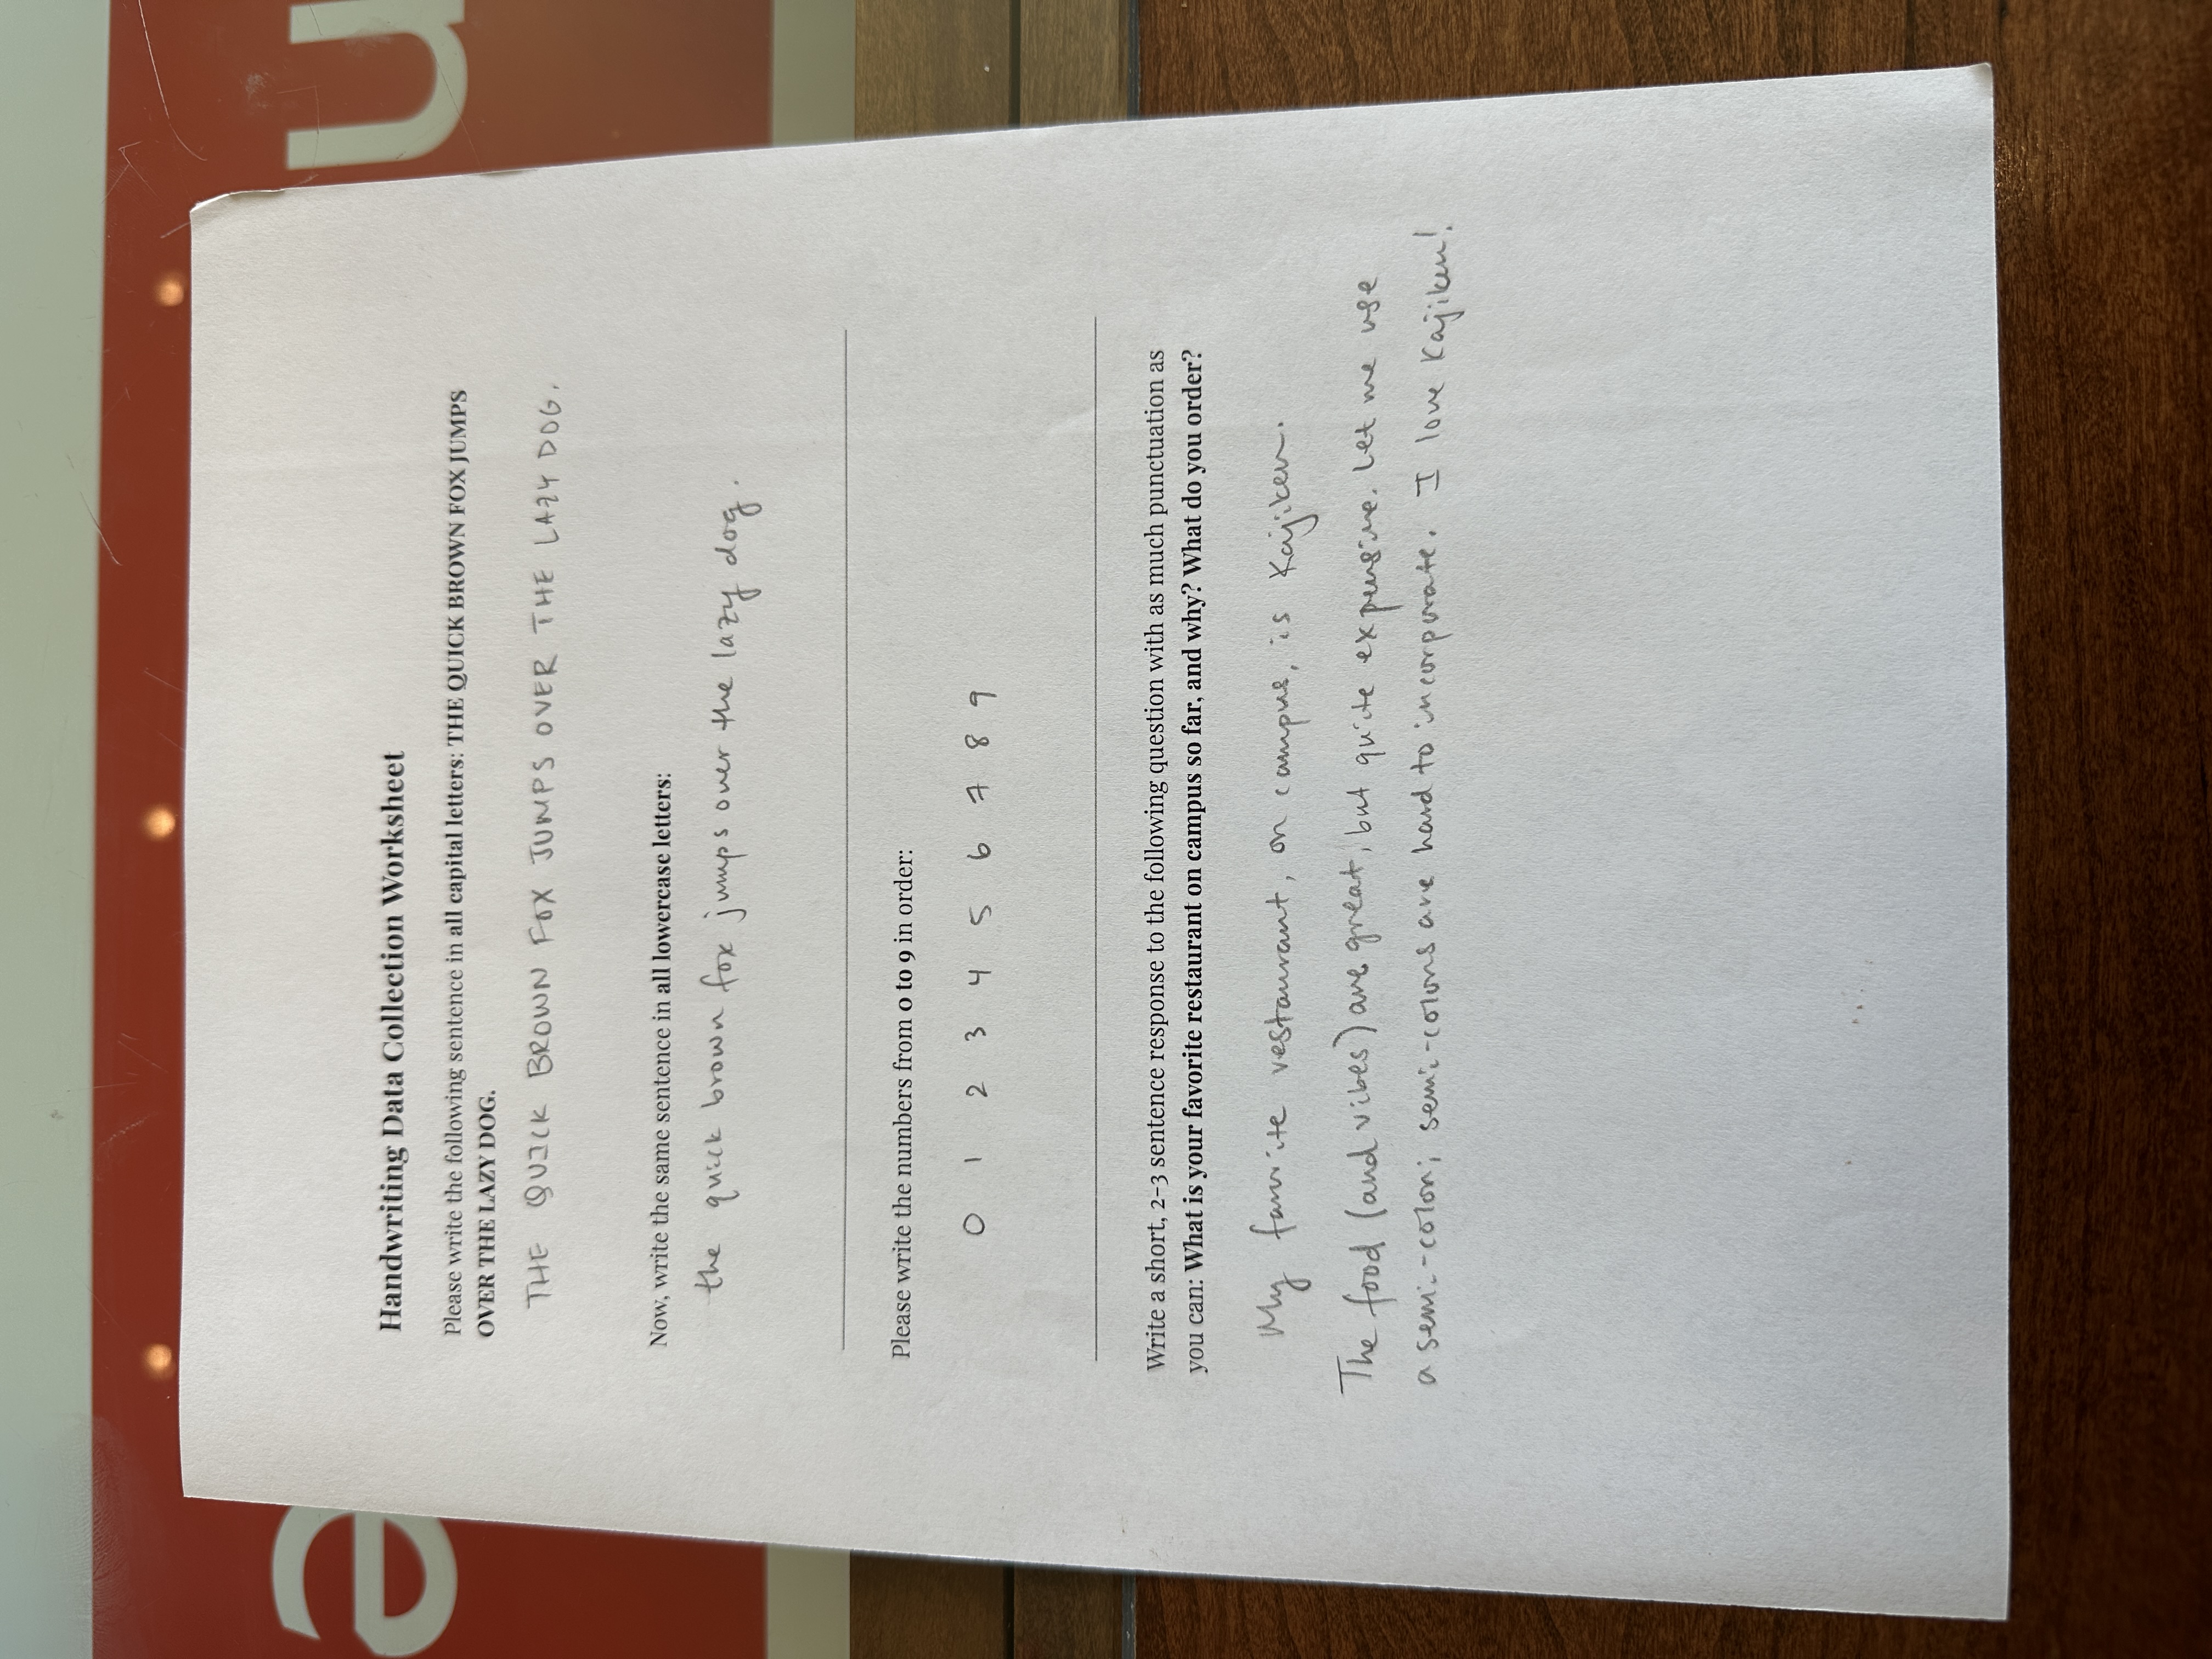 Handwriting Data Collection Worksheet
Please write the following sentence in all capital letters: THE QUICK BROWN FOX JUMPS
OVER THE LAZY DOG.
THE QUICK BROWN FOX JUMPS OVER THE LAZY DOG.
Now, write the same sentence in all lowercase letters:
the quick brown fox jumps over the lazy dog.
Please write the numbers from 0 to 9 in order:
0 1 2 3 4 5 6 7 8 9
Write a short, 2-3 sentence response to the following question with as much punctuation as
you can: What is your favorite restaurant on campus so far, and why? What do you order?
My favorite restaurant, on campus, is Kajiken.
The food (and vibes) are great, but quite expensive. Let me use
a semi-colon; semi-colons are hard to incorporate. I love Kajiken!